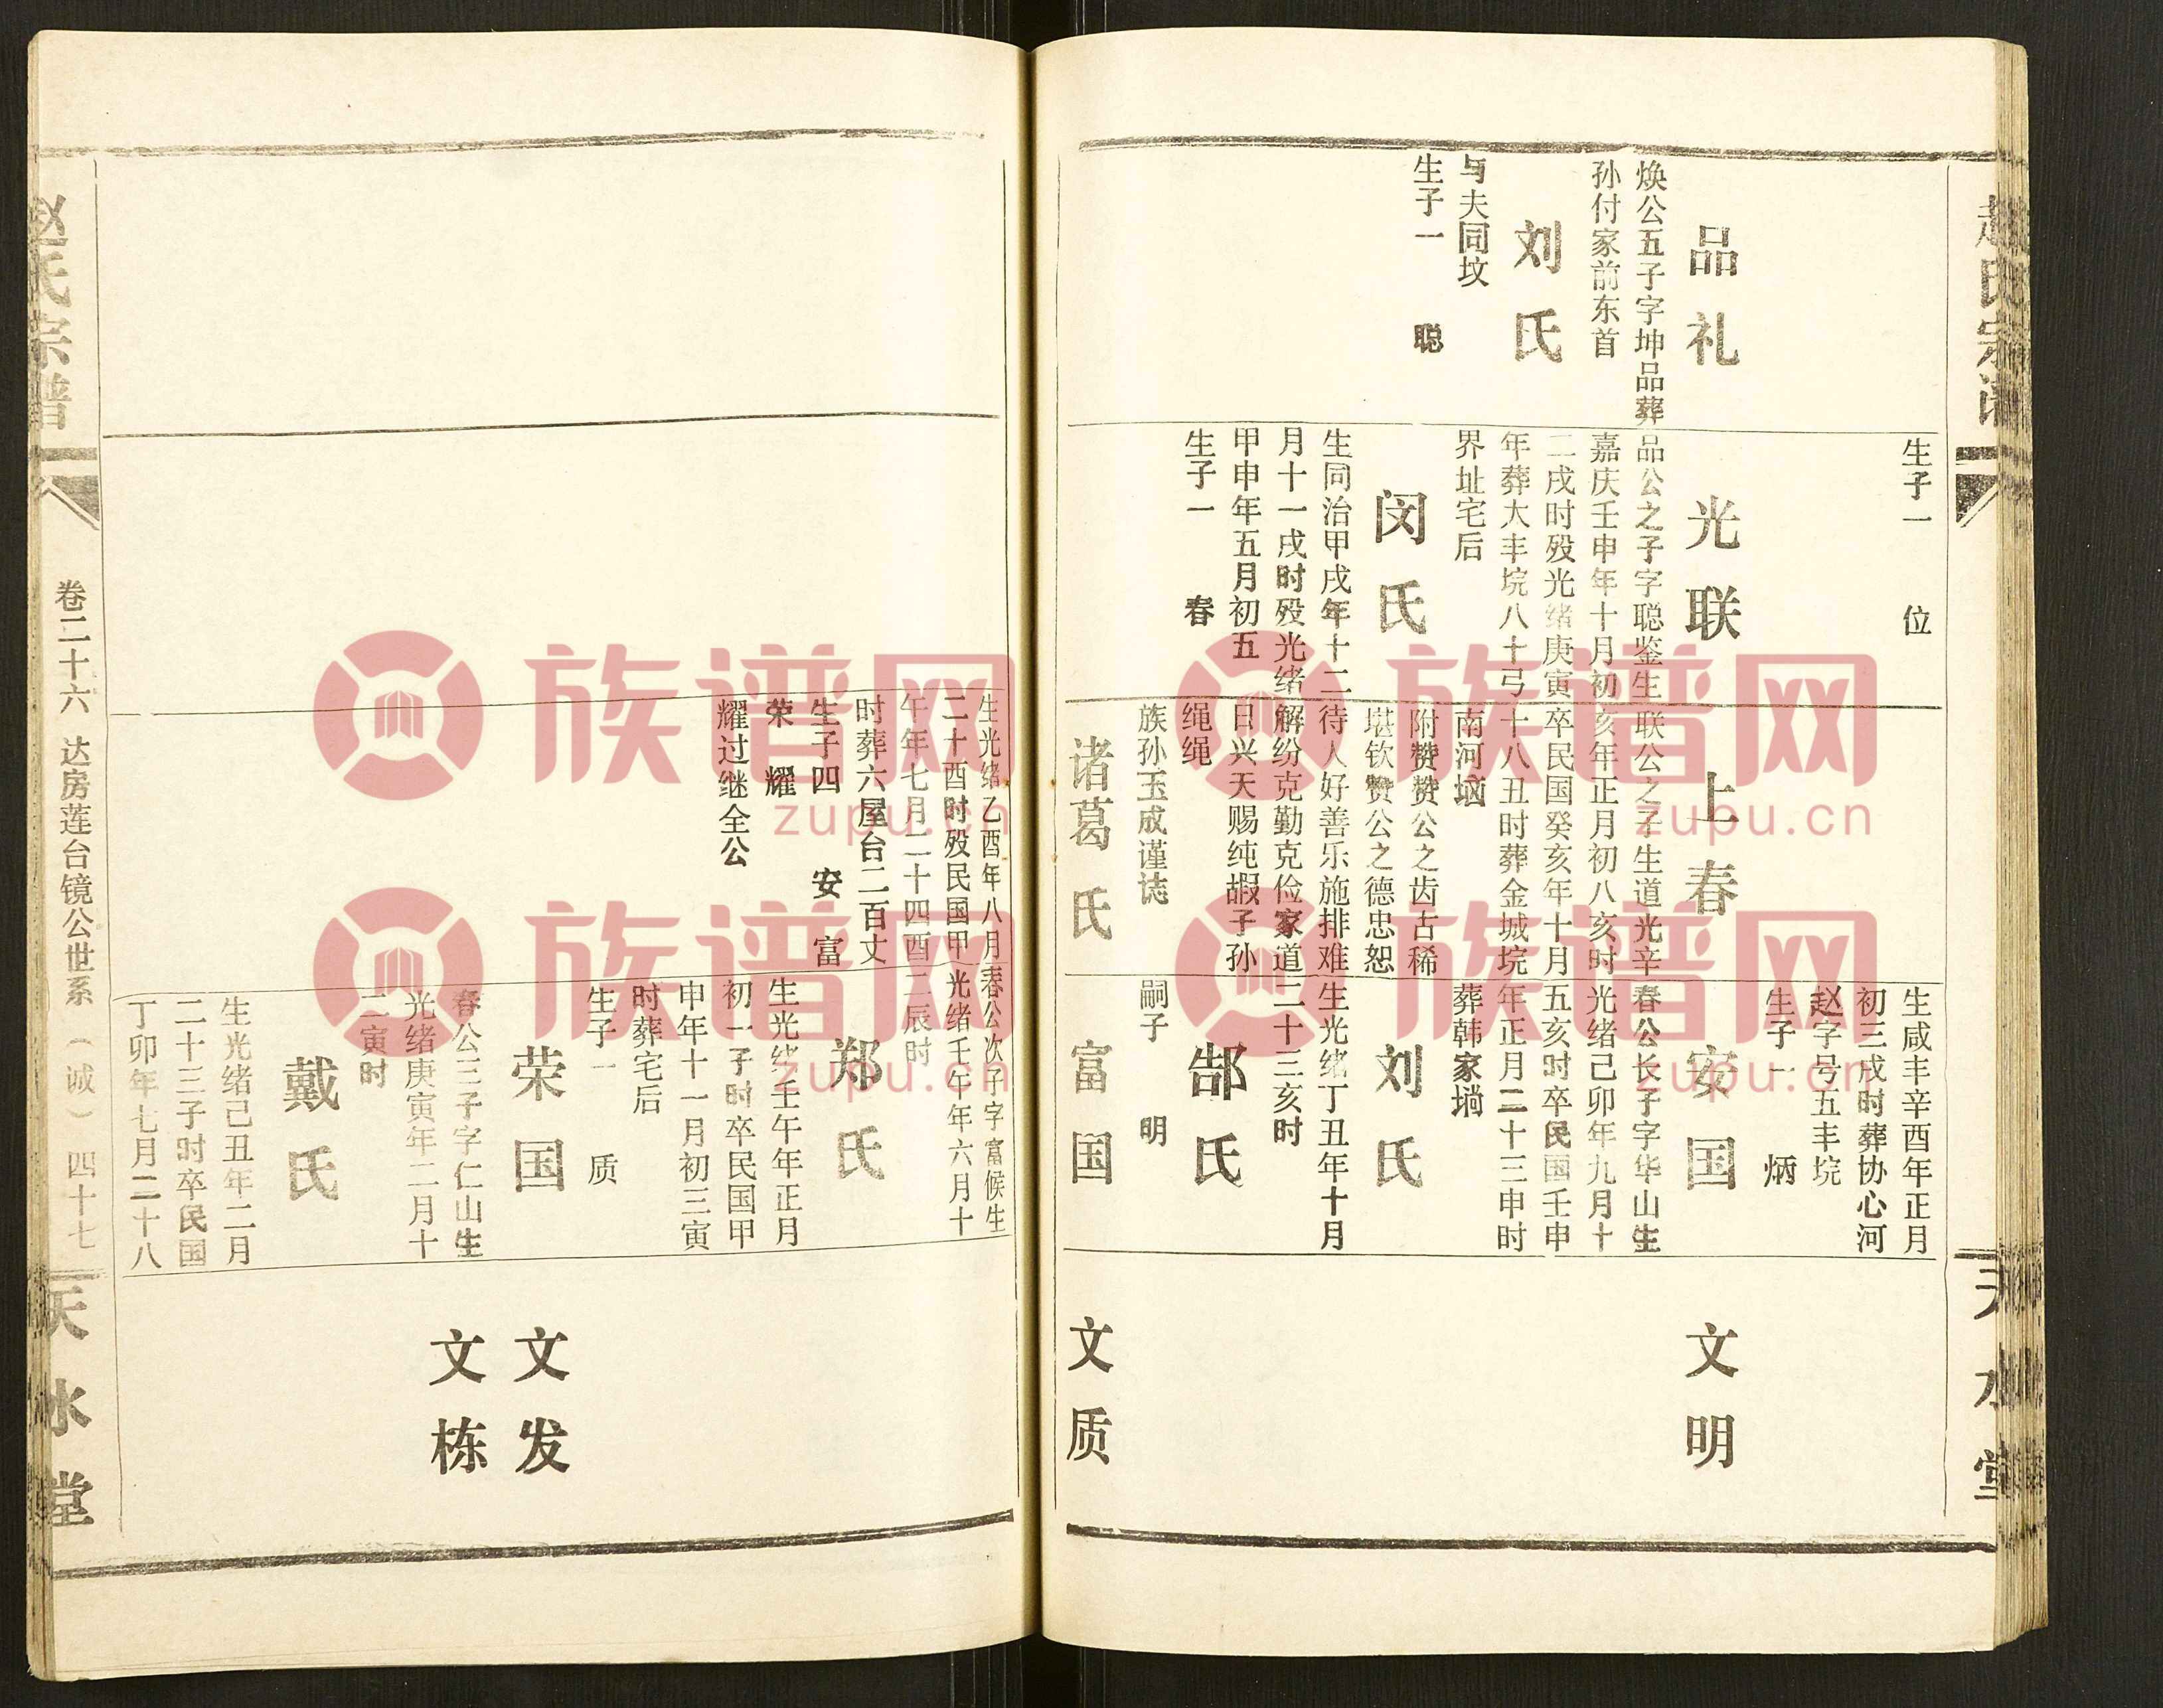 赵氏宗谱
天水堂
品礼
焕公五子字坤品葬
孙付家前东首
刘氏
与夫同坟
生子一 聪
生子一 位
光联
品公之子字聪鉴生
嘉庆壬申年十月初
二戌时殁光绪庚寅
年葬大丰垸八十弓
界址宅后
闵氏
生同治甲戌年十二
月十一戌时殁光绪
甲申年五月初五
生子一 春
上春
联公之子生道光辛
亥年正月初八亥时
卒民国癸亥年十月
十八丑时葬金城垸
南河垴
附赞赞公之齿古稀
堪钦赞公之德忠恕
待人好善乐施排难
解纷克勤克俭家道
日兴天赐纯嘏子孙
绳绳
族孙玉成谨志
诸葛氏
生咸丰辛酉年正月
初三戌时葬协心河
赵字号五丰垸
生子一 炳
安国
春公长子字华山生
光绪己卯年九月十
五亥时卒民国壬申
年正月二十三申时
葬韩家塆
刘氏
生光绪丁丑年十月
二十三亥时
郜氏
嗣子 明
富国
文明
文质
生光绪乙酉年八月
二十酉时殁民国甲
午年七月二十四酉
时葬六屋台二百丈
生子四 安 富
荣 耀
耀过继全公
春公次子字富候生
光绪壬午年六月十
二辰时
郑氏
生光绪壬午年正月
初一子时卒民国甲
申年十一月初三寅
时葬宅后
生子一 质
荣国
春公三子字仁山生
光绪庚寅年二月十
二寅时
戴氏
生光绪己丑年二月
二十三子时卒民国
丁卯年七月二十八
文发
文栋
赵氏宗谱
卷二十六 达房莲台镜公世系（诚）四十七
天水堂
族谱网
zupu.cn
族谱网
zupu.cn
族谱网
zupu.cn
族谱网
zupu.cn